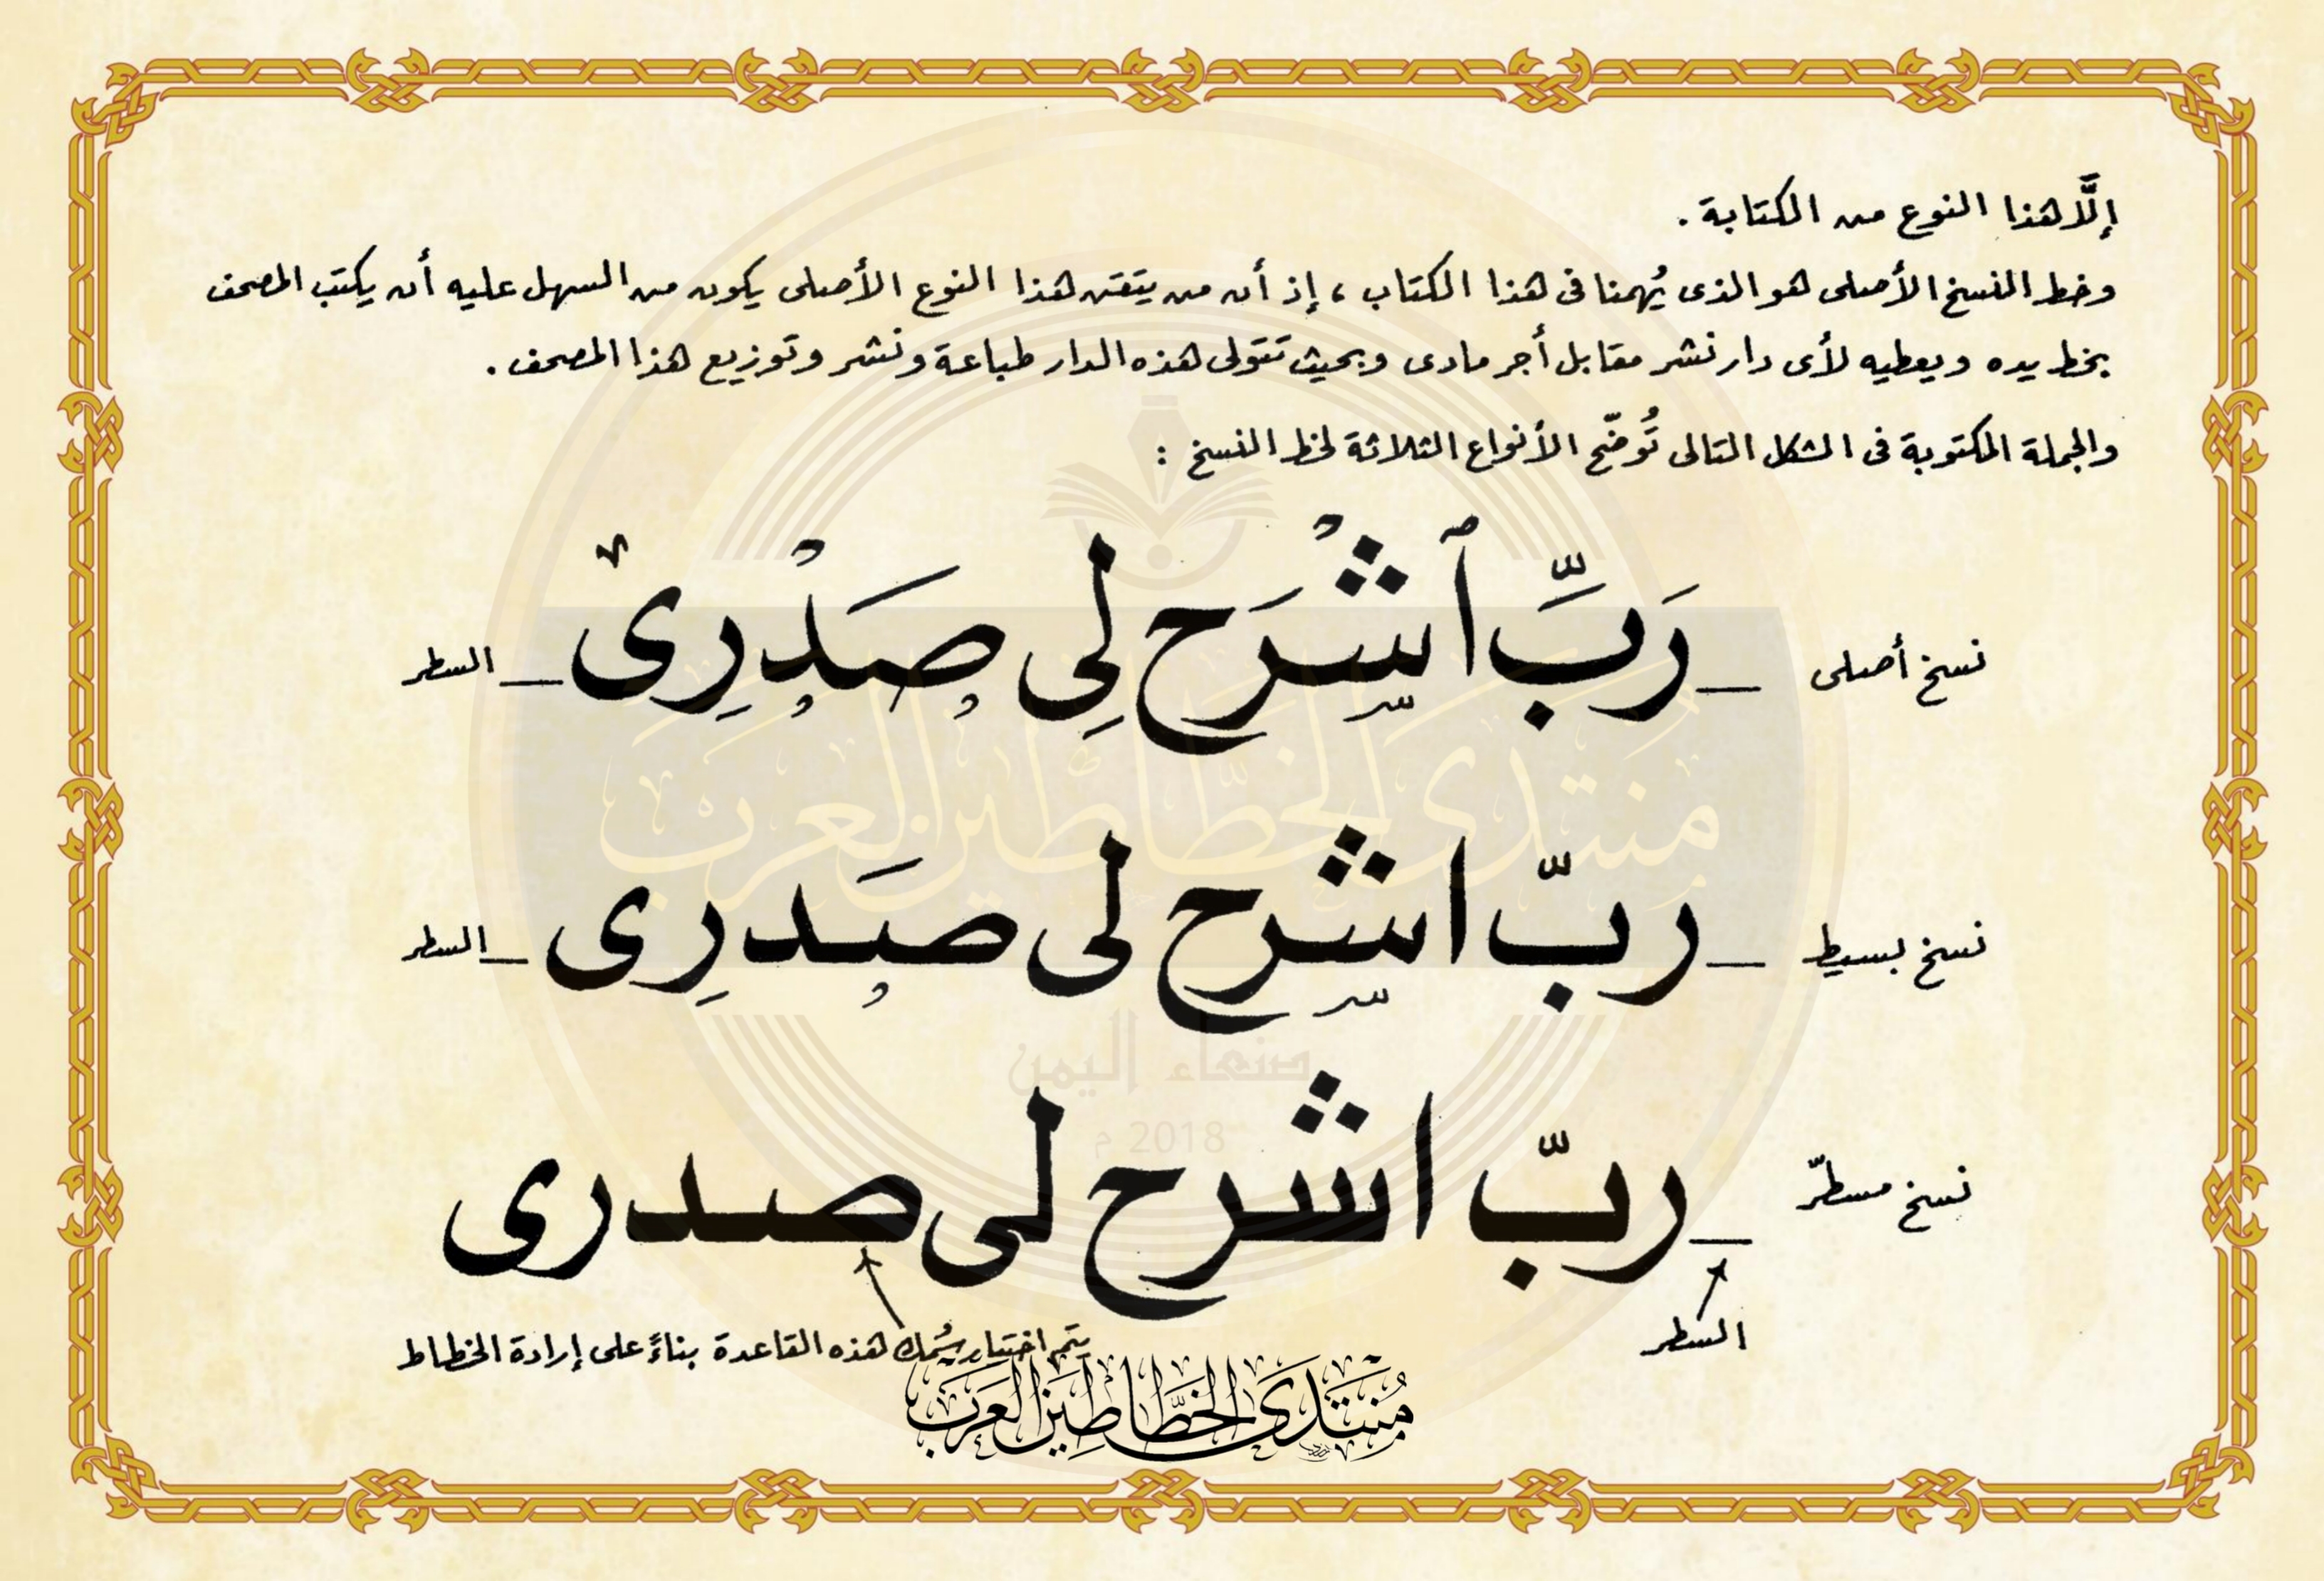 إلَّا هذا النوع من الكتابة .
وخط النسخ الأصلى هو الذى يُهمنا فى هذا الكتاب ، إذ أن من يتقن هذا النوع الأصلى يكون من السهل عليه أن يكتب المصحف
بخط يده ويعطيه لأى دار نشر مقابل أجر مادى وبحيث تتولى هذه الدار طباعة ونشر وتوزيع هذا المصحف .
والجملة المكتوبة فى الشكل التالى تُوضّح الأنواع الثلاثة لخط النسخ :
نسخ أصلى رَبِّ ٱشْرَح لِى صَدْرِىْ السطر
نسخ بسيط ربّ اشرح لى صَدرِى السطر
نسخ مسطّر ربّ اشرح لى صدرى
السطر
يتم اختيار سُمك هذه القاعدة بناءً على إرادة الخطاط
مُنتَدَى الخَطَّاطِين العَرَب
منتدى الخطاطين العرب
صنعاء اليمن
2018 م